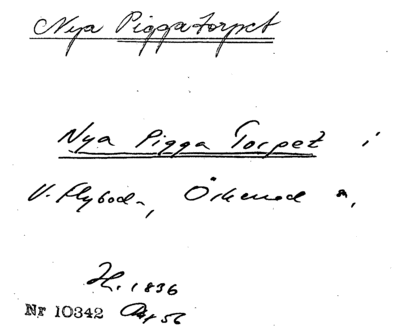 Nya Piggatorpet
Nya Pigga Torpet i
V. Flybod-, Örkened s,
H. 1836
Nr 10342